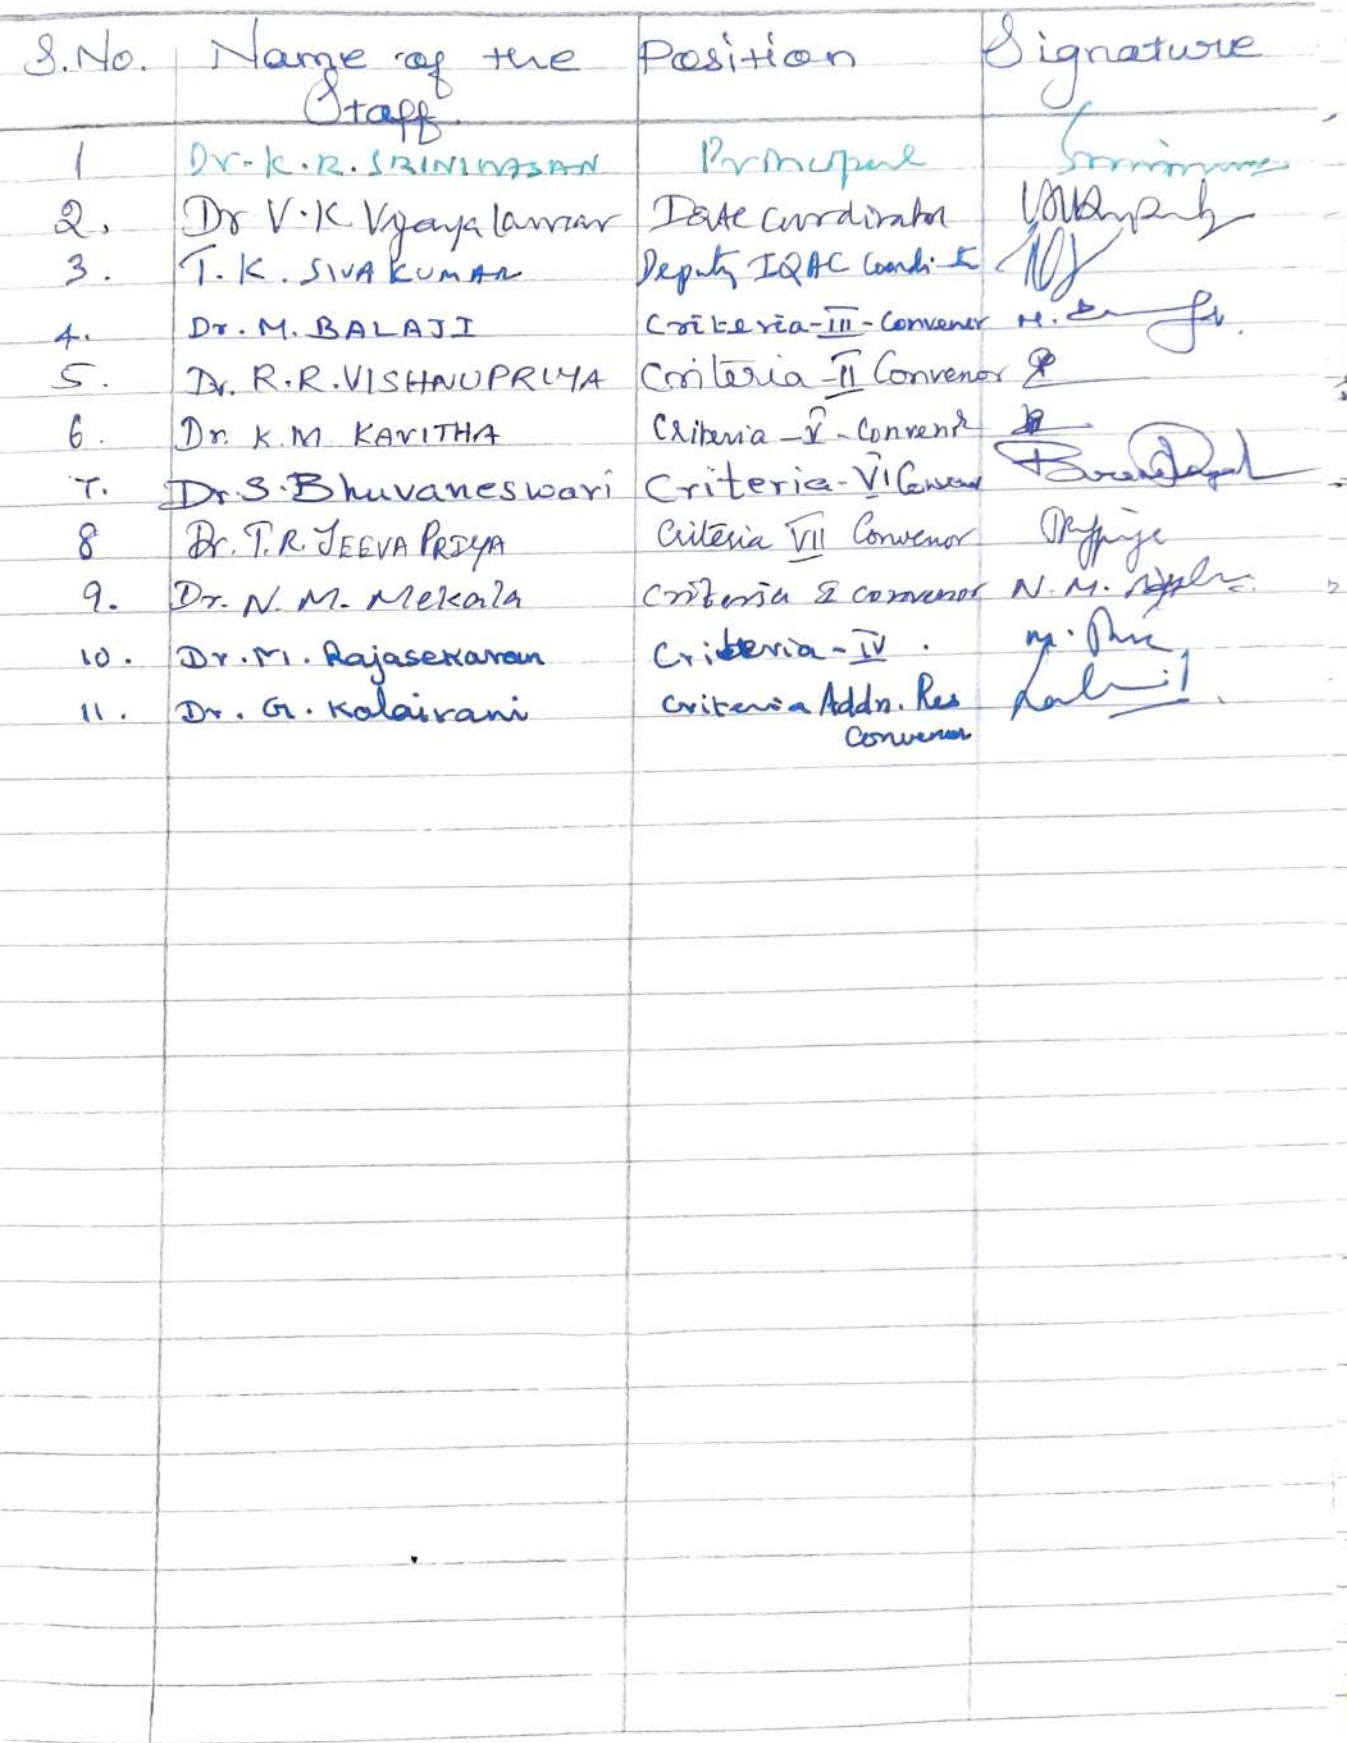 S.No. Name of the Position Signature
Staff.
1 Dr. K. R. SRINIVASAN Principal
2. Dr V.K Date Coordinator
3. T. K. SIVA KUMAR Deputy IQAC
4. Dr. M. BALAJI Criteria-III-Convener M.
5. Dr. R.R. VISHNUPRIYA Criteria-II Convenor
6. Dr. K.M KAVITHA Criteria-V-Convenor
7. Dr. S. Bhuvaneswari Criteria-VI
8 Dr. T.R. JEEVA PRIYA Criteria VII Convenor
9. Dr. N. M. Mekala Criteria convenor N. M.
10. Dr. M. Rajasekaran Criteria-IV. M.
11. Dr. G. Kalairani Criteria Addn. Res
Convenor